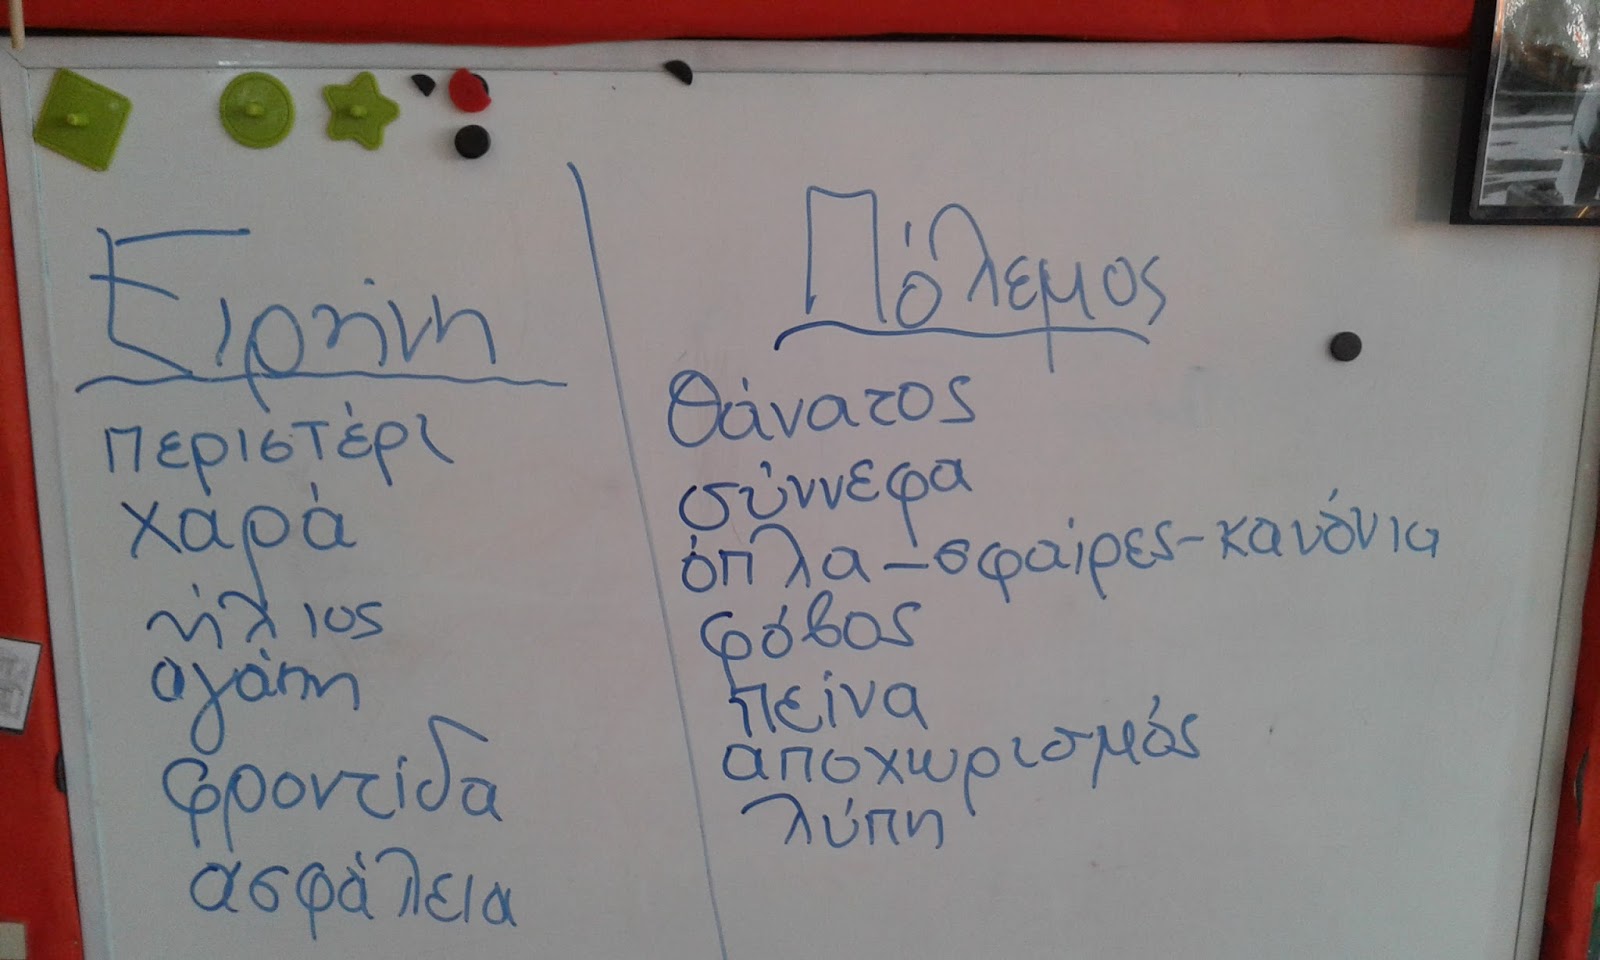 Ειρήνη
περιστέρι
χαρά
ήλιος
αγάπη
φροντίδα
ασφάλεια
Πόλεμος
θάνατος
σύννεφα
όπλα-σφαίρες-κανόνια
φόβος
πείνα
αποχωρισμός
λύπη